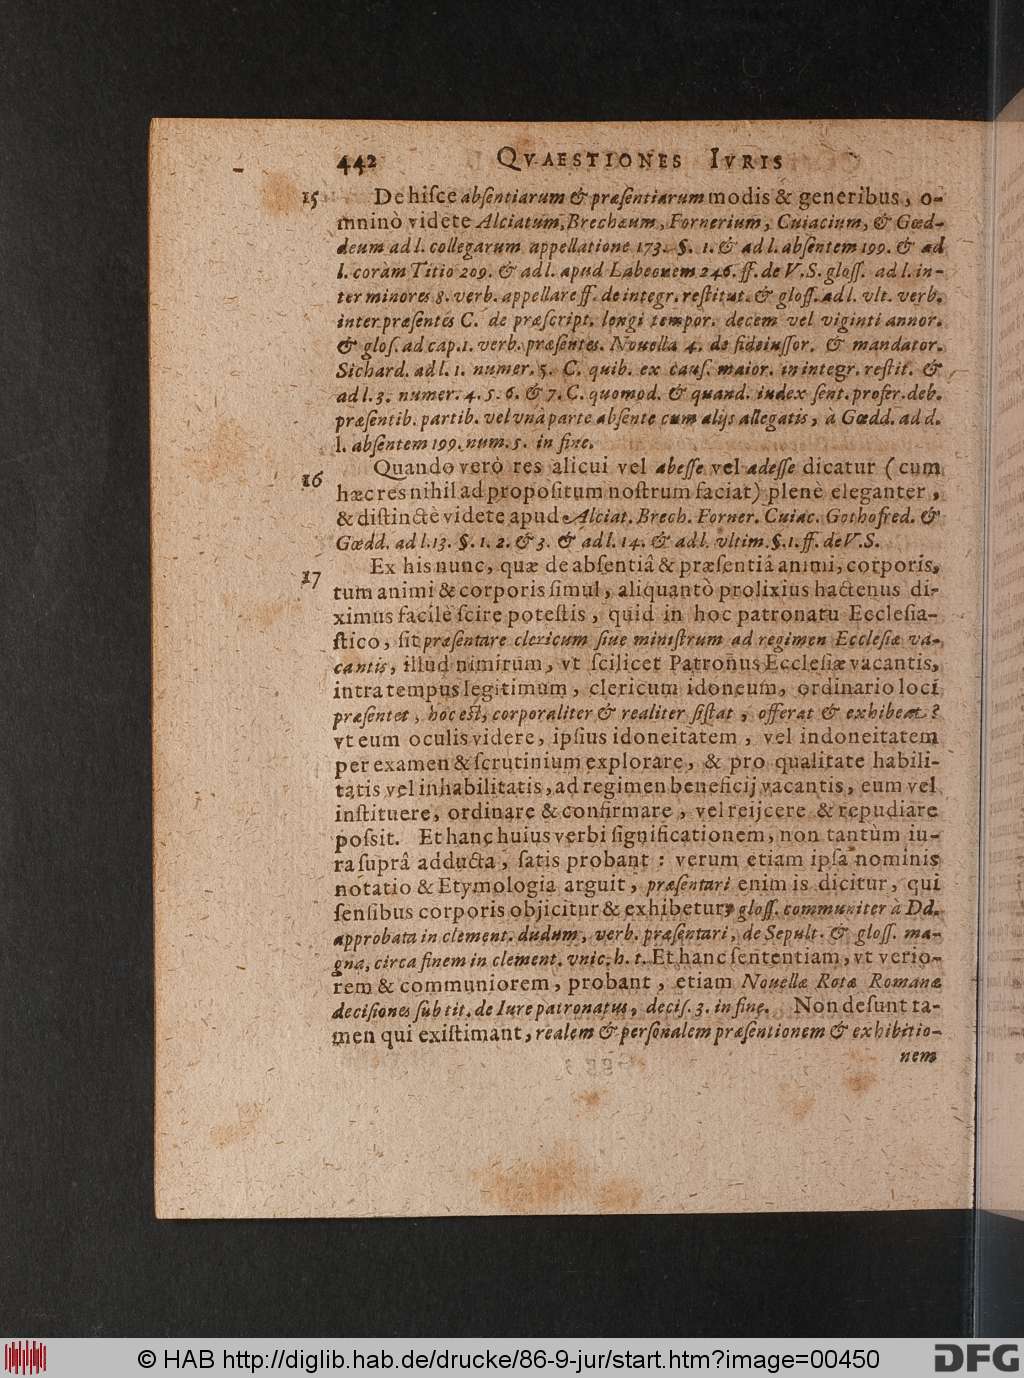 442 QVAESTIONES IVRIS
15 De hiſce abſentiarum & præſentiarum modis & generibus, o-
mninò videte Alciatum, Brechæum, Fornerium, Cuiacium, & Gœd-
deum ad l. collegarum appellatione 173. §. 1. & ad l. abſentem 199. & ad
l. coràm Titio 209. & ad l. apud Labeonem 246. ff. de V.S. gloſſ. ad l. in-
ter minores 8. verb. appellare ff. de integr. reſtitut. & gloſſ. ad l. vlt. verb.
inter præſentes C. de præſcript. longi tempor. decem vel viginti annor.
& gloſ. ad cap. 1. verb. præſentes. Nouella 4. de fideiuſſor. & mandator.
Sichard. ad l. 1. numer. 5. C. quib. ex cauſ. maior. in integr. reſtit. &
ad l. 3. numer. 4. 5. 6. & 7. C. quomod. & quand. iudex ſent. profer. deb.
præſentib. partib. vel vnà parte abſente cum alijs allegatis, à Gœdd. ad d.
l. abſentem 199. num. 5. in fine.
16 Quando verò res alicui vel abeſſe vel adeſſe dicatur (cum
hæc res nihil ad propoſitum noſtrum faciat) plenè eleganter,
& diſtinctè videte apud Alciat. Brech. Forner. Cuiac. Gothofred. &
Gœdd. ad l. 13. §. 1. 2. & 3. & ad l. 14. & ad l. vltim. §. 1. ff. de V.S.
17 Ex his nunc, quæ de abſentiâ & præſentiâ animi, corporis,
tum animi & corporis ſimul, aliquantò prolixius hactenus di-
ximus facilè ſcire poteſtis, quid in hoc patronatu Eccleſia-
ſtico, ſit præſentare clericum ſiue miniſtrum ad regimen Eccleſiæ va-
cantis, illud nimirùm, vt ſcilicet Patronus Eccleſiæ vacantis,
intra tempus legitimum, clericum idoneum, ordinario loci
præſentet, hoc eſt, corporaliter & realiter ſiſtat, offerat & exhibeat?
vt eum oculis videre, ipſius idoneitatem, vel indoneitatem
per examen & ſcrutinium explorare, & pro qualitate habili-
tatis vel inhabilitatis, ad regimen beneficij vacantis, eum vel
inſtituere, ordinare & confirmare, vel reijcere & repudiare
poſsit. Et hanc huius verbi ſignificationem, non tantùm iu-
ra ſuprâ adducta, ſatis probant: verum etiam ipſa nominis
notatio & Etymologia arguit, præſentari enim is dicitur, qui
ſenſibus corporis objicitur & exhibetur, gloſſ. communiter à Dd.
approbata in clement. dudum, verb. præſentari, de Sepult. & gloſſ. ma-
gna, circa finem in clement. vnic. h. t. Et hanc ſententiam, vt verio-
rem & communiorem, probant, etiam Nouellæ Rotæ Romanæ
deciſiones ſub tit. de Iure patronatus, deciſ. 3. in fine. Non deſunt ta-
men qui exiſtimant, realem & perſonalem præſentionem & exhibitio-
nem
© HAB http://diglib.hab.de/drucke/86-9-jur/start.htm?image=00450
DFG